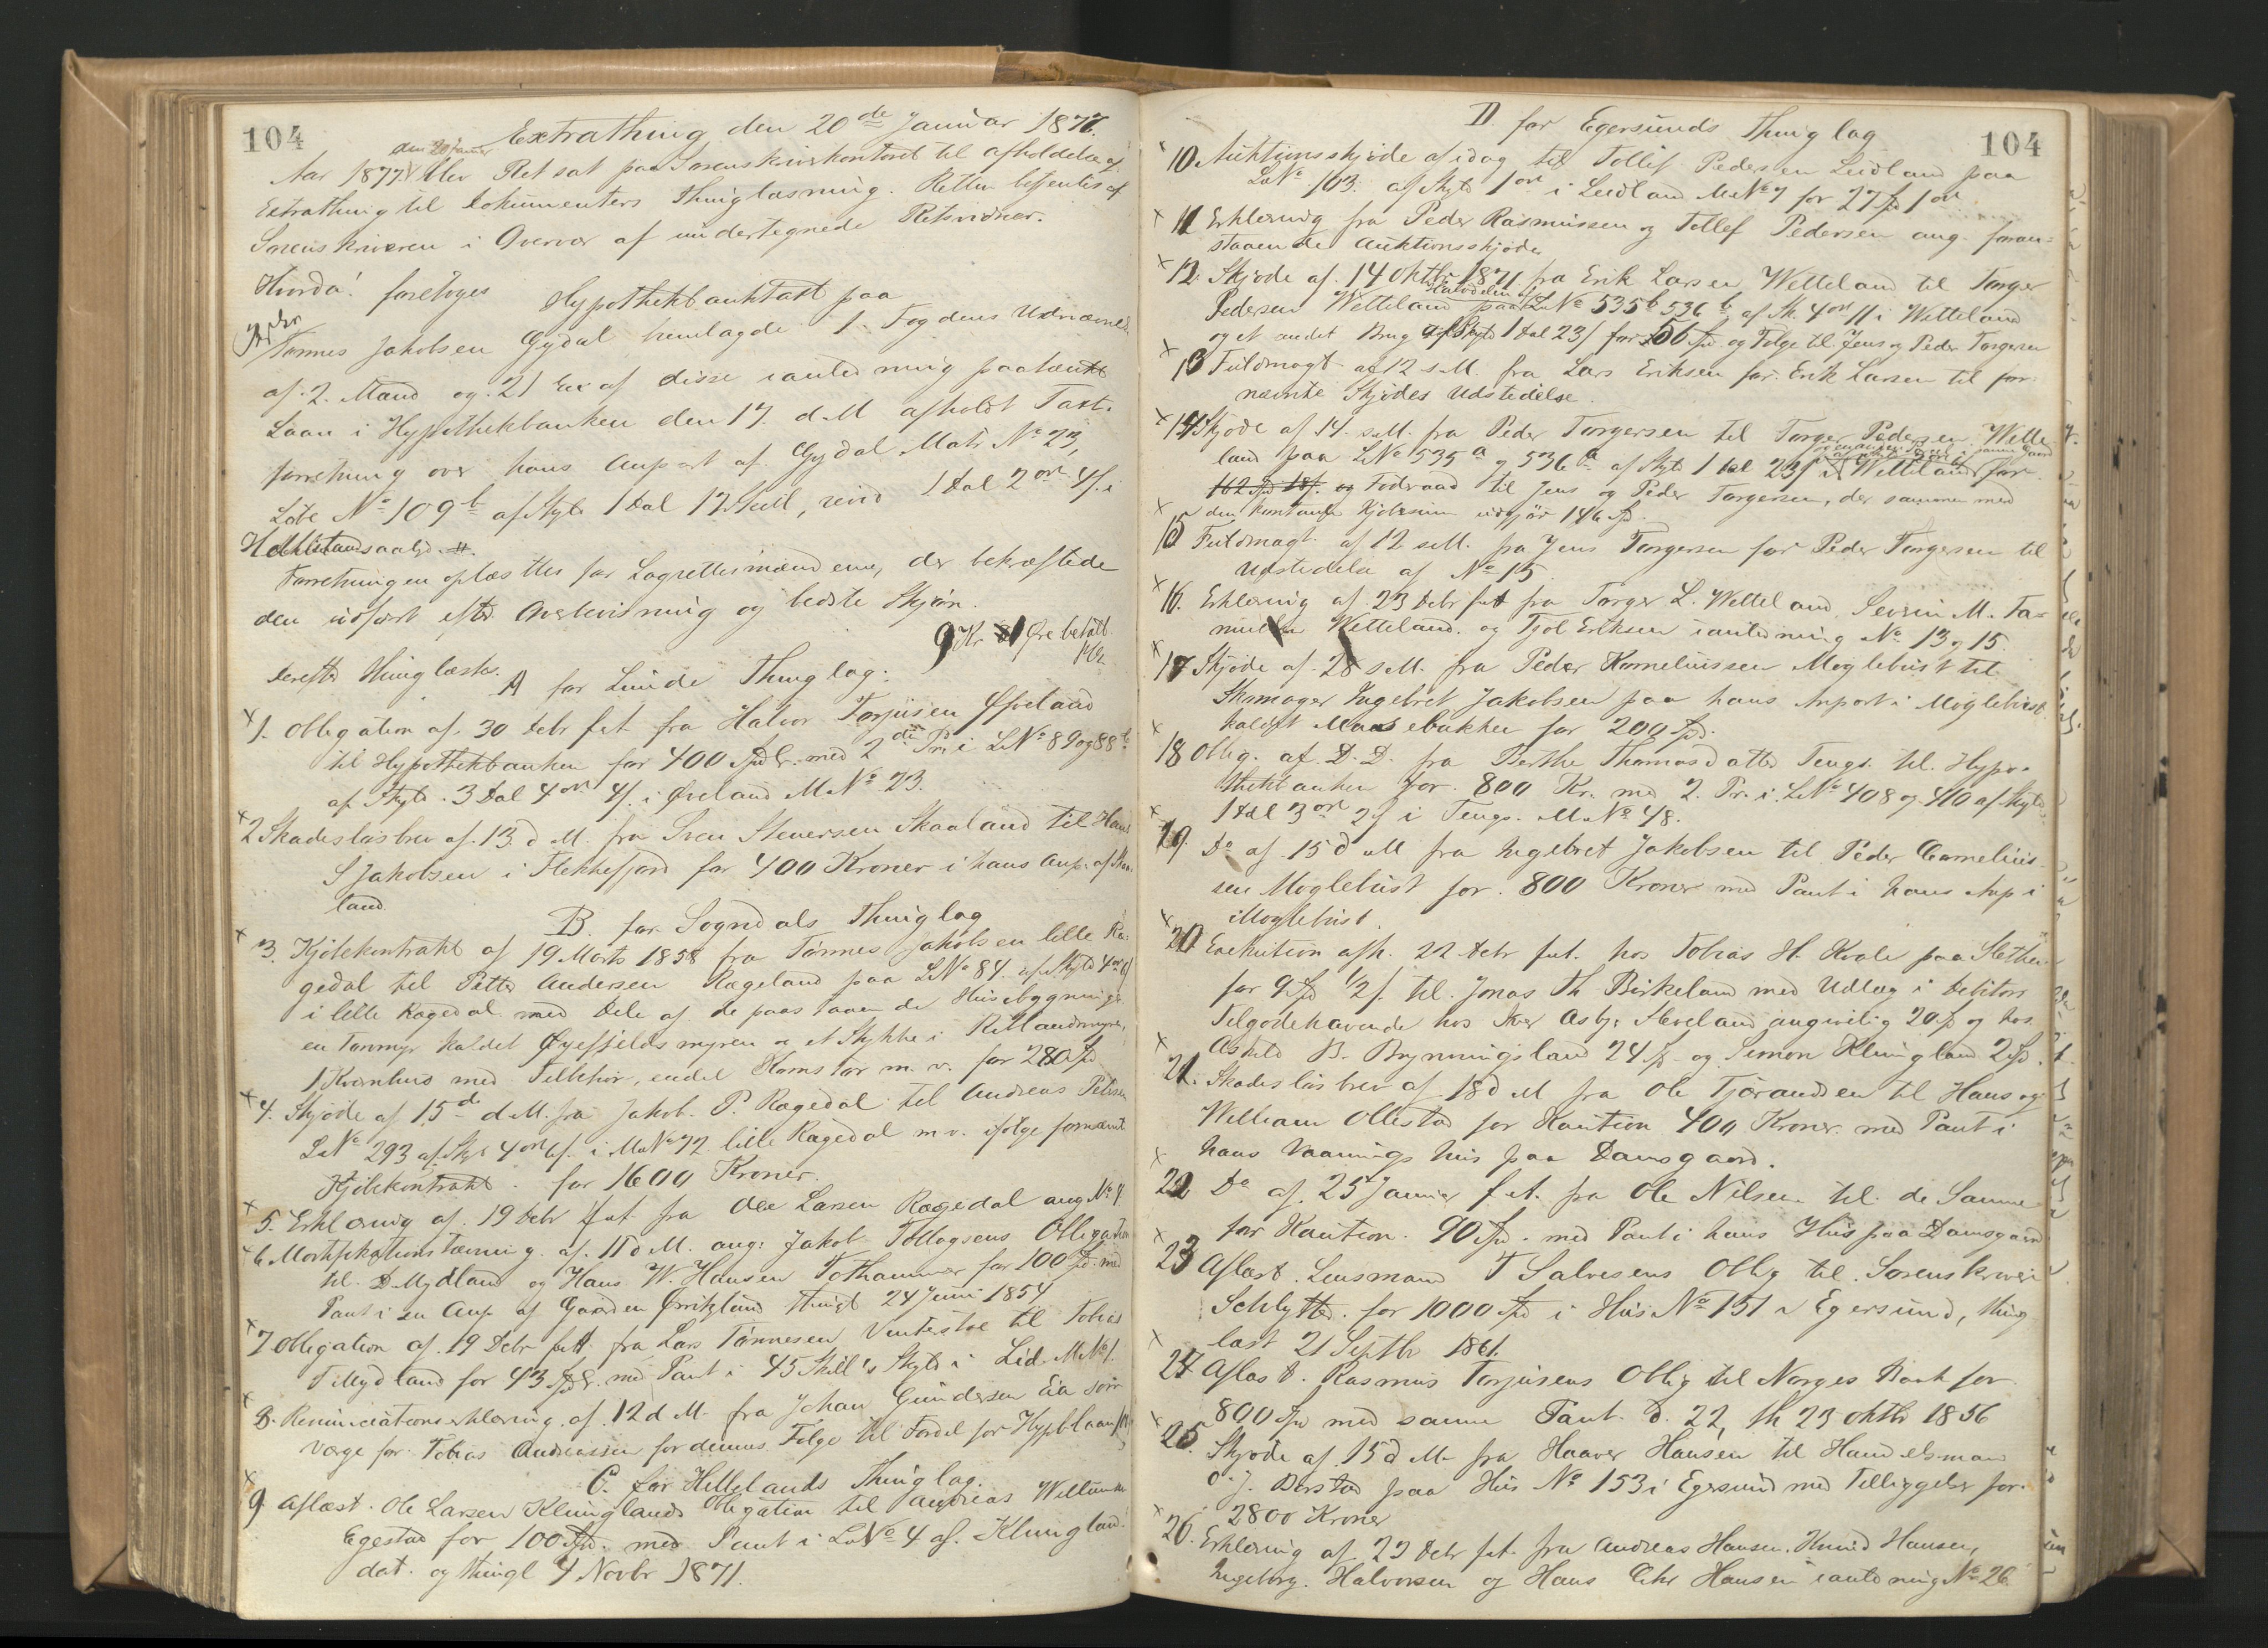 104
Extrathing den 20de Januar 1877.
Aar 1877 den 20 Januar blev Ret sat paa Sorenskriverkontoret til afholdelse af
Extrathing til Dokumenters Thinglæsning. Retten betjentes af
Sorenskriveren i Overvær af undertegnede Retsvidner.
Hvorda! foretoges Hypothekbanktakt paa
Tønnes Jakobsen Gydal fremlagde 1. Fogdens Udnævnelse
af 2. Mænd og 2) En af disse i anledning paatænkt
Laan i Hypothekbanken den 17. d.M. afholdt Taxt-
forretning over hans Anpart af Gydal Matr No 23,
Løbe No 109b af Skyld 1 Dal 17 Skill, revid 1 Dal 2 ort 4 s. i
Hellelandsaalyd.
Forretningen oplæstes for Lagrettesmændene, der bekræftede
den udført efter Overbevisning og bedste Skjøn.
9 Kr 81 Øre betalt
Derefter thinglæstes.
A for Lunde Thinglag:
1. Obligation af 30 Debr f.A. fra Halvor Torjusen Øveland
til Hypothekbanken for 400 Spdlr. med 2den Pr. i LNo 89 og 88b
af Skyld 3 Dal 4 ort 4 s. i Øveland M No 23.
2 Skadesløsbrev af 13 d M. fra Sven Stenersen Skaaland til Hans
S Jakobsen i Flekkefjord for 400 Kroner i hans Anp. af Skaa-
land
B. for Sogndals Thinglag
3. Kjøbekontrakt af 19 Marts 1858 fra Tønnes Jakobsen lille Ræ-
gedal til Petter Andersen Rægeland paa LNo 84. af Skyld 4 ort 6 s
i lille Rægedal med Dele af de paastaaende Huisebygninger
en Torvmyr kaldet Øyefjelds myren og et Stykke i Retlandsmyren,
1 Kvernhus med Tilbehør, endel m. v. for 280 Spd
4. Skjøde af 15de d.M. fra Jakob P. Rægedal til Andreas Petersen
LNo 293 af Skyld 4 ort 6 s. i M No 72 lille Rægedal m.v. ifølge fornævnte
Kjøbekontrakt. for 1600 Kroner.
5. Erklæring af 19 Debr f.A. fra Ole Larsen Rægedal ang No 4
6 Mortifikationstævning af 11 d M. ang: Jakob Tollagsens Obligation
til D. Mydland og Hans W. Hansen Tothammer for 100 Spd med
Pant i en Anp af Gaarden Ørritzland thingl 24 Juni 1854
7 Obligation af 19 Debr f.A. fra Lars Tønnesen Vinterstøe til Tobias
T Mydland for 43 Spdlr. med Pant i 45 Skill's Skyld i Lid. M No 1.
8. Renunciationserklæring af 12 d M. fra Johan Gundersen Eia som
Værge for Tobias Andreassen for dennes Følge til Fordel for Hypblaan
C. for Hellelands Thinglag.
9 Aflæst. Ole Larsen Klunglands Obligation til Andreas Willumsen
Egestad for 100 Spd. med Pant i LNo 4 af Klungland
dat. og thingl 4 Novbr 1871.
D. for Egersunds Thinglag
104
10 Auktionsskjøde af idag til Tollef Pedersen Leidland paa
LNo 103. af Skyld 1 ort i Leidland M No 7 for 27 Spd 1 ort
11 Erklæring fra Peder Rasmussen og Tollef Pedersen ang. foran-
staaende Auktionsskjøde
12. Skjøde af 14 Oktbr 1871 fra Erik Larsen Wetteland til Torger
Pedersen Wetteland paa Halvdelen af LNo 535b 536b af Sk. 4 ort 11 i Wetteland
og et andet Brug af Skyld 1 Dal 23 s for 56 Spd og Følge til Jens og Peder Torgersen
13 Fuldmagt af 12 s.M. fra Lars Eriksen for Erik Larsen til for-
nævnte Skjødes Udstedelse.
14 Skjøde af 14. s.M. fra Peder Torgersen til Torger Pedersen Wette-
land paa LNo 535a og 536a af Skyld 1 Dal 23 s i Wetteland for
162 Spd 18 s. og Fodraad til Jens og Peder Torgersen, der sammen med
den kontante Kjøbesum udgjør 146 Spd.
15 Fuldmagt af 12 s.M. fra Jens Torgersen for Peder Torgersen til
Udstedelse af No 15
16. Erklæring af 23 Debr f.A. fra Torger L. Wetteland, Severin M. Ta-
Wetteland og Tjøl Eriksen i anledning No 13 og 15.
17 Skjøde af 28 s.M. fra Peder Korneliussen Møglebust til
Skomager Ingebret Jakobsen paa hans Anpart i Møglebust
kaldet Maasebakken for 200 Spd.
18 Oblig. af D.D. fra Berthe Thomasdatter Tengs til Hypo-
thekbanken for 800 Kr. med 2. Pr. i LNo 408 og 410 af Skyld
1 Dal 3 ort 2 s i Tengs. M No 48.
19. Do af 15 d M fra Ingebret Jakobsen til Peder Cornelius-
sen Møglebust for 800 Kroner med Pant i hans Anp i
Møglebust.
20 Exekution afh. 22 Debr f.A. hos Tobias H. Kvale paa Sletthei
for 9 Spd 1/2 s. til Jonas Th Birkeland med Udlæg i Debitors
Tilgodehavende hos Iver Asbj: Steveland angivelig 20 Sp og hos
B. Brynningsland 24 Sp og Simon Klungland 2 Spd.
21. Skadesløsbrev af 18 d M fra Ole Tjørandsen til Hans og
William Ollestad for Kaution 400 Kroner med Pant i
hans Vaaningshus paa Damsgaard.
22 Do af 25 Januar f.A. fra Ole Nilsen til de Samme
for Kaution. 90 Spd. med Pant i hans Hus paa Damsgaard
23 Aflæst. Lensmand T Salvesens Oblig til Sorenskriver
Schlytter for 1000 Spd i Hus No 151 i Egersund, thing-
læst 21 Septbr 1861.
24 Aflæst. Rasmus Torjusens Oblig til Norges Bank for
800 Spd med samme Pant. d. 22, th 23 Oktbr 1856
25 Skjøde af 15 d M fra Haaver Hansen til Handelsmand
O. J. Børstad paa Hus No 153 i Egersund med Tilliggelser for
2800 Kroner
26. Erklæring af 23 Debr f.A. fra Andreas Hansen, Knud Hansen,
Ingeborg Halvorsen og Hans Chr Hansen i anledning No 26